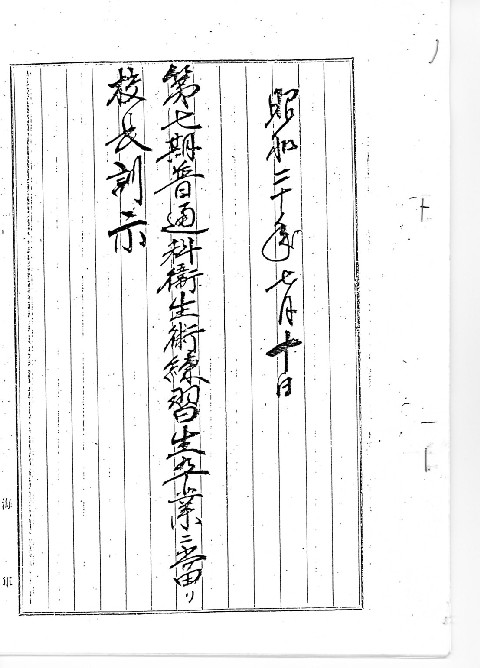 昭和二十年七月十日
第七期普通科衛生術練習生卒業ニ當リ
校長訓示
海軍